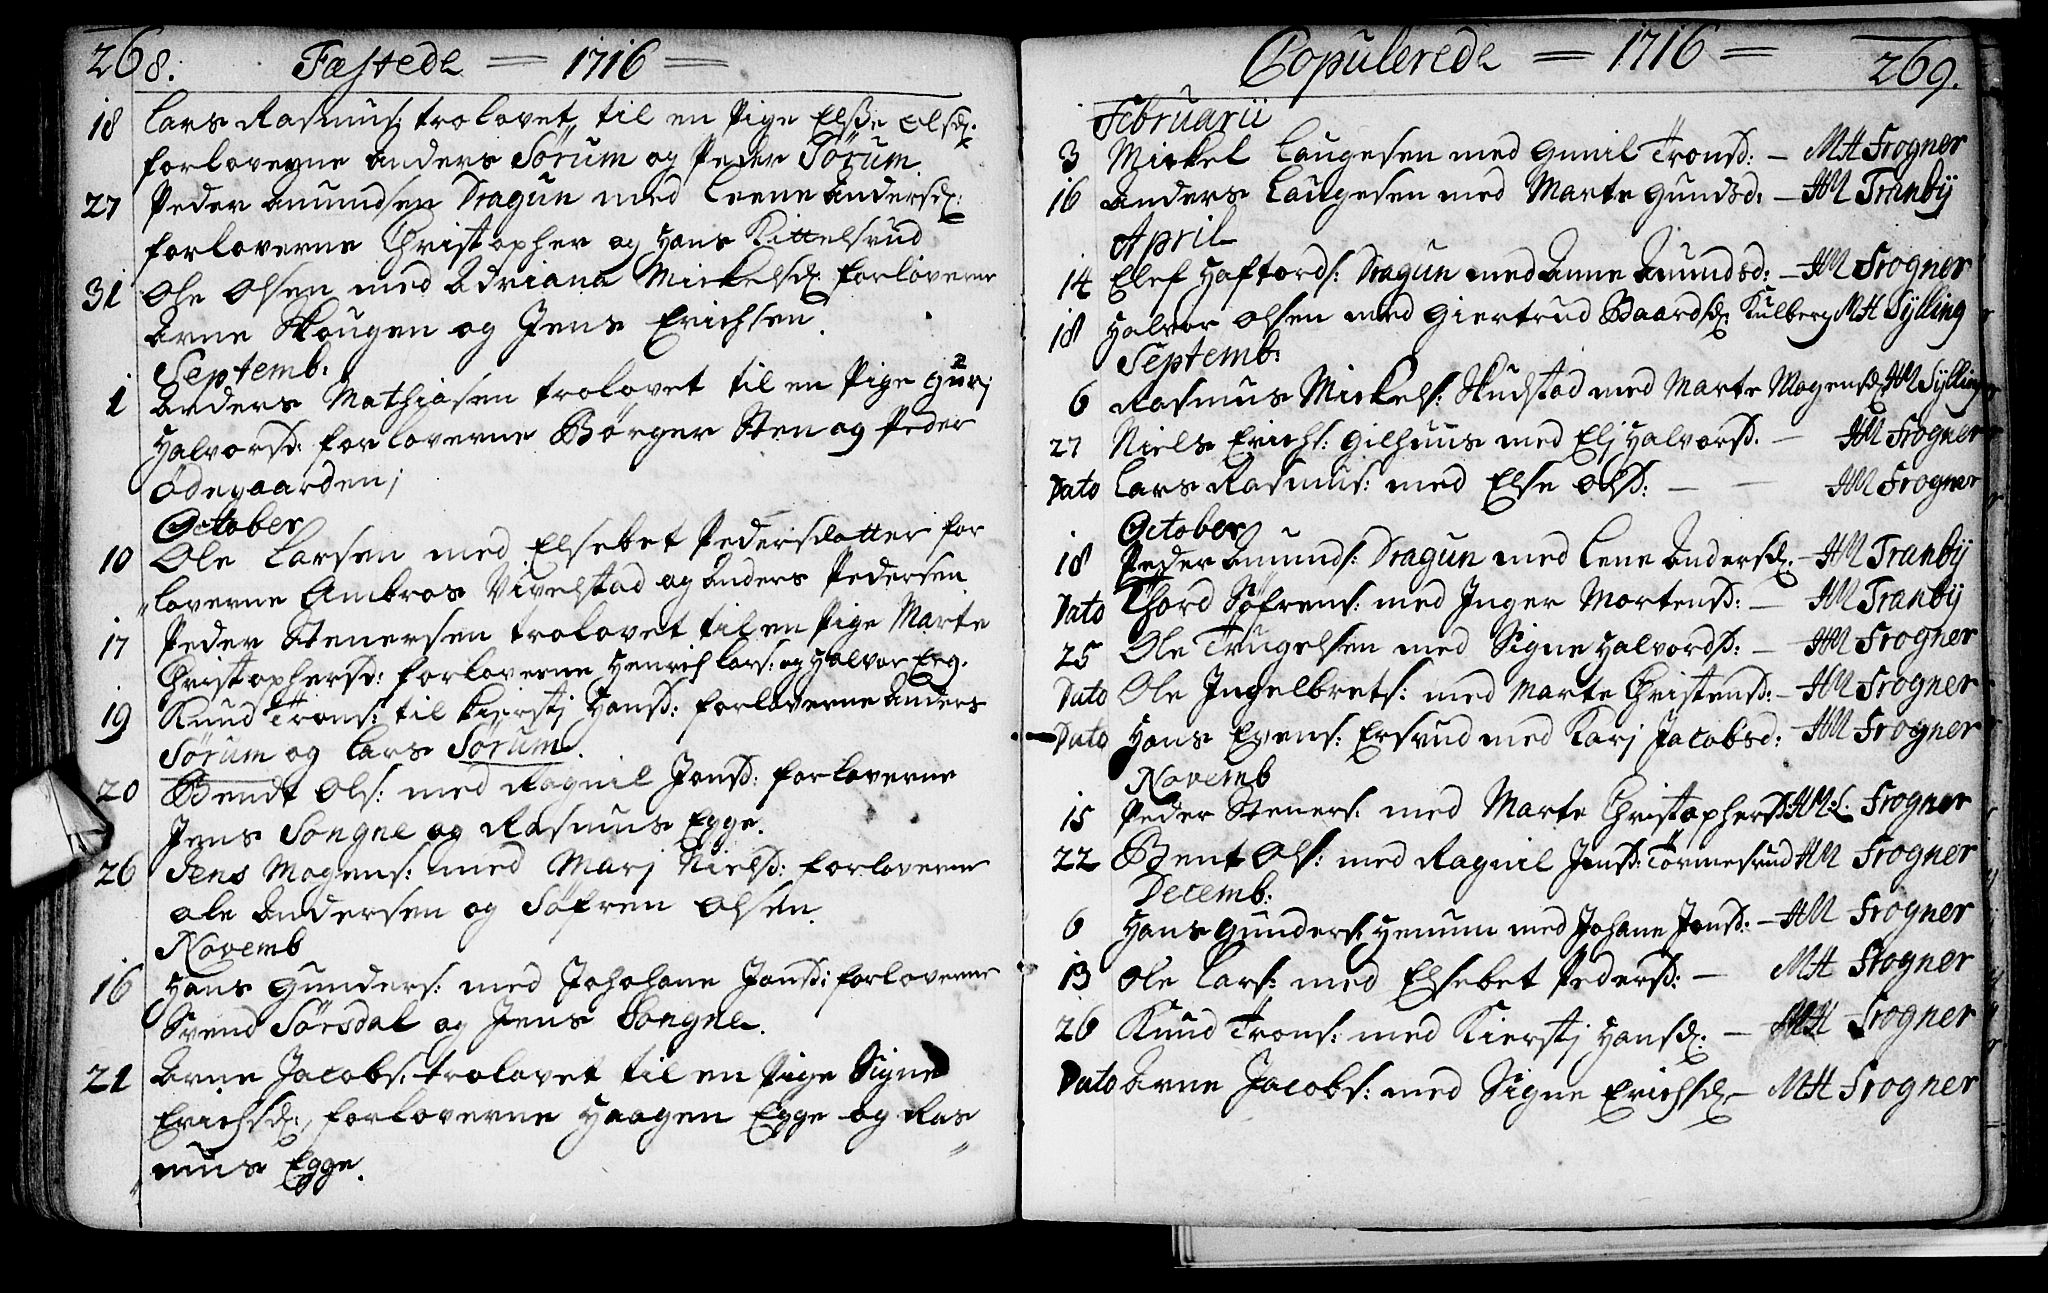 268. Fæstede = 1716 =
18 Lars Rasmus: trolovet til en Pige Elsze Olsd:
forloverne Anders Sörum og Peder Sörum.
27 Peder Amundsen Dragun med Leene Andersd:
forloverne Christopher og Hans Kittelsrud
31 Ole Olsen med Adriana Mickelsd: forloverne
Arne Skougen og Jens Erichsen.
Septemb:
1 Anders Mathiasen trolovet til en Pige Gurj
Halvorsd: forloverne Börger Sten og Peder
Ödegaarden;
October
10 Ole Larsen med Elsebet Pedersdatter for
loverne Ambros Vivelstad og Anders Pedersen
17 Peder Stenersen trolovet til en Pige Marte
Christophersd: forloverne Henrich Lars: og Halvor Erg.
19 Knud Trons: til Kierstj Hansd: forloverne Anders
Sörum og Lars Sörum.
20 Bendt Ols: med Ragnil Jonsd: forloverne
Jens Songne og Rasmus Egge.
26 Jens Mogens: med Marj Nielsd: forloverne
Ole Andersen og Söfren Olsen.
Novemb
16 Hans Gunders: med Johohane Jonsd: forloverne
Svend Sörsdal og Jens Songne.
21 Arne Jacobs: trolovet til en Pige Signe
Erichsd:, forloverne Haagen Egge og Ras
mus Egge.
Copulerede = 1716 = 269.
Februarii
3 Mickel Laugesen med Gunil Tronsd: — MH Frogner
16 Anders Laugesen med Marte Gundsd: — HM Tranby
April
14 Elef Haftords: Dragun med Anne Amundsd: — HM Frogner
18 Halvor Olsen med Giertrud Baardsd: Kulberg MH Sylling
Septemb:
6 Rasmus Mickels: Skudstad med Marte Mogensd: HM Sylling
27 Niels Erichs: Gilhuus med Elj Halvorsd: — HM Frogner
Dato Lars Rasmus: med Else Olsd: — — HM Frogner
October
18 Peder Amunds: Dragun med Lene Andersd: — HM Tranby
Dato Thord Söfrens: med Inger Mortensd: — HM Tranby
25 Ole Trugelsen med Signe Halvordsd: — HM Frogner
Dato Ole Ingelbrets: med Marte Christensd: — HM Frogner
Dato Hans Evens: Ersrud med Karj Jacobsd: HM Frogner
Novemb
15 Peder Steners: med Marte Christophersd: HM:L: Frogner
22 Bent Ols: med Ragnil Jonsd: Tormesrud HM Frogner
Decemb:
6 Hans Gunders: Henum med Johane Jonsd: — HM Frogner
13 Ole Lars: med Elsebet Pedersd: — MH Frogner
26 Knud Trons: med Kierstj Hansd: — MH Frogner
Dato Arne Jacobs: med Signe Erichsd: — MH Frogner